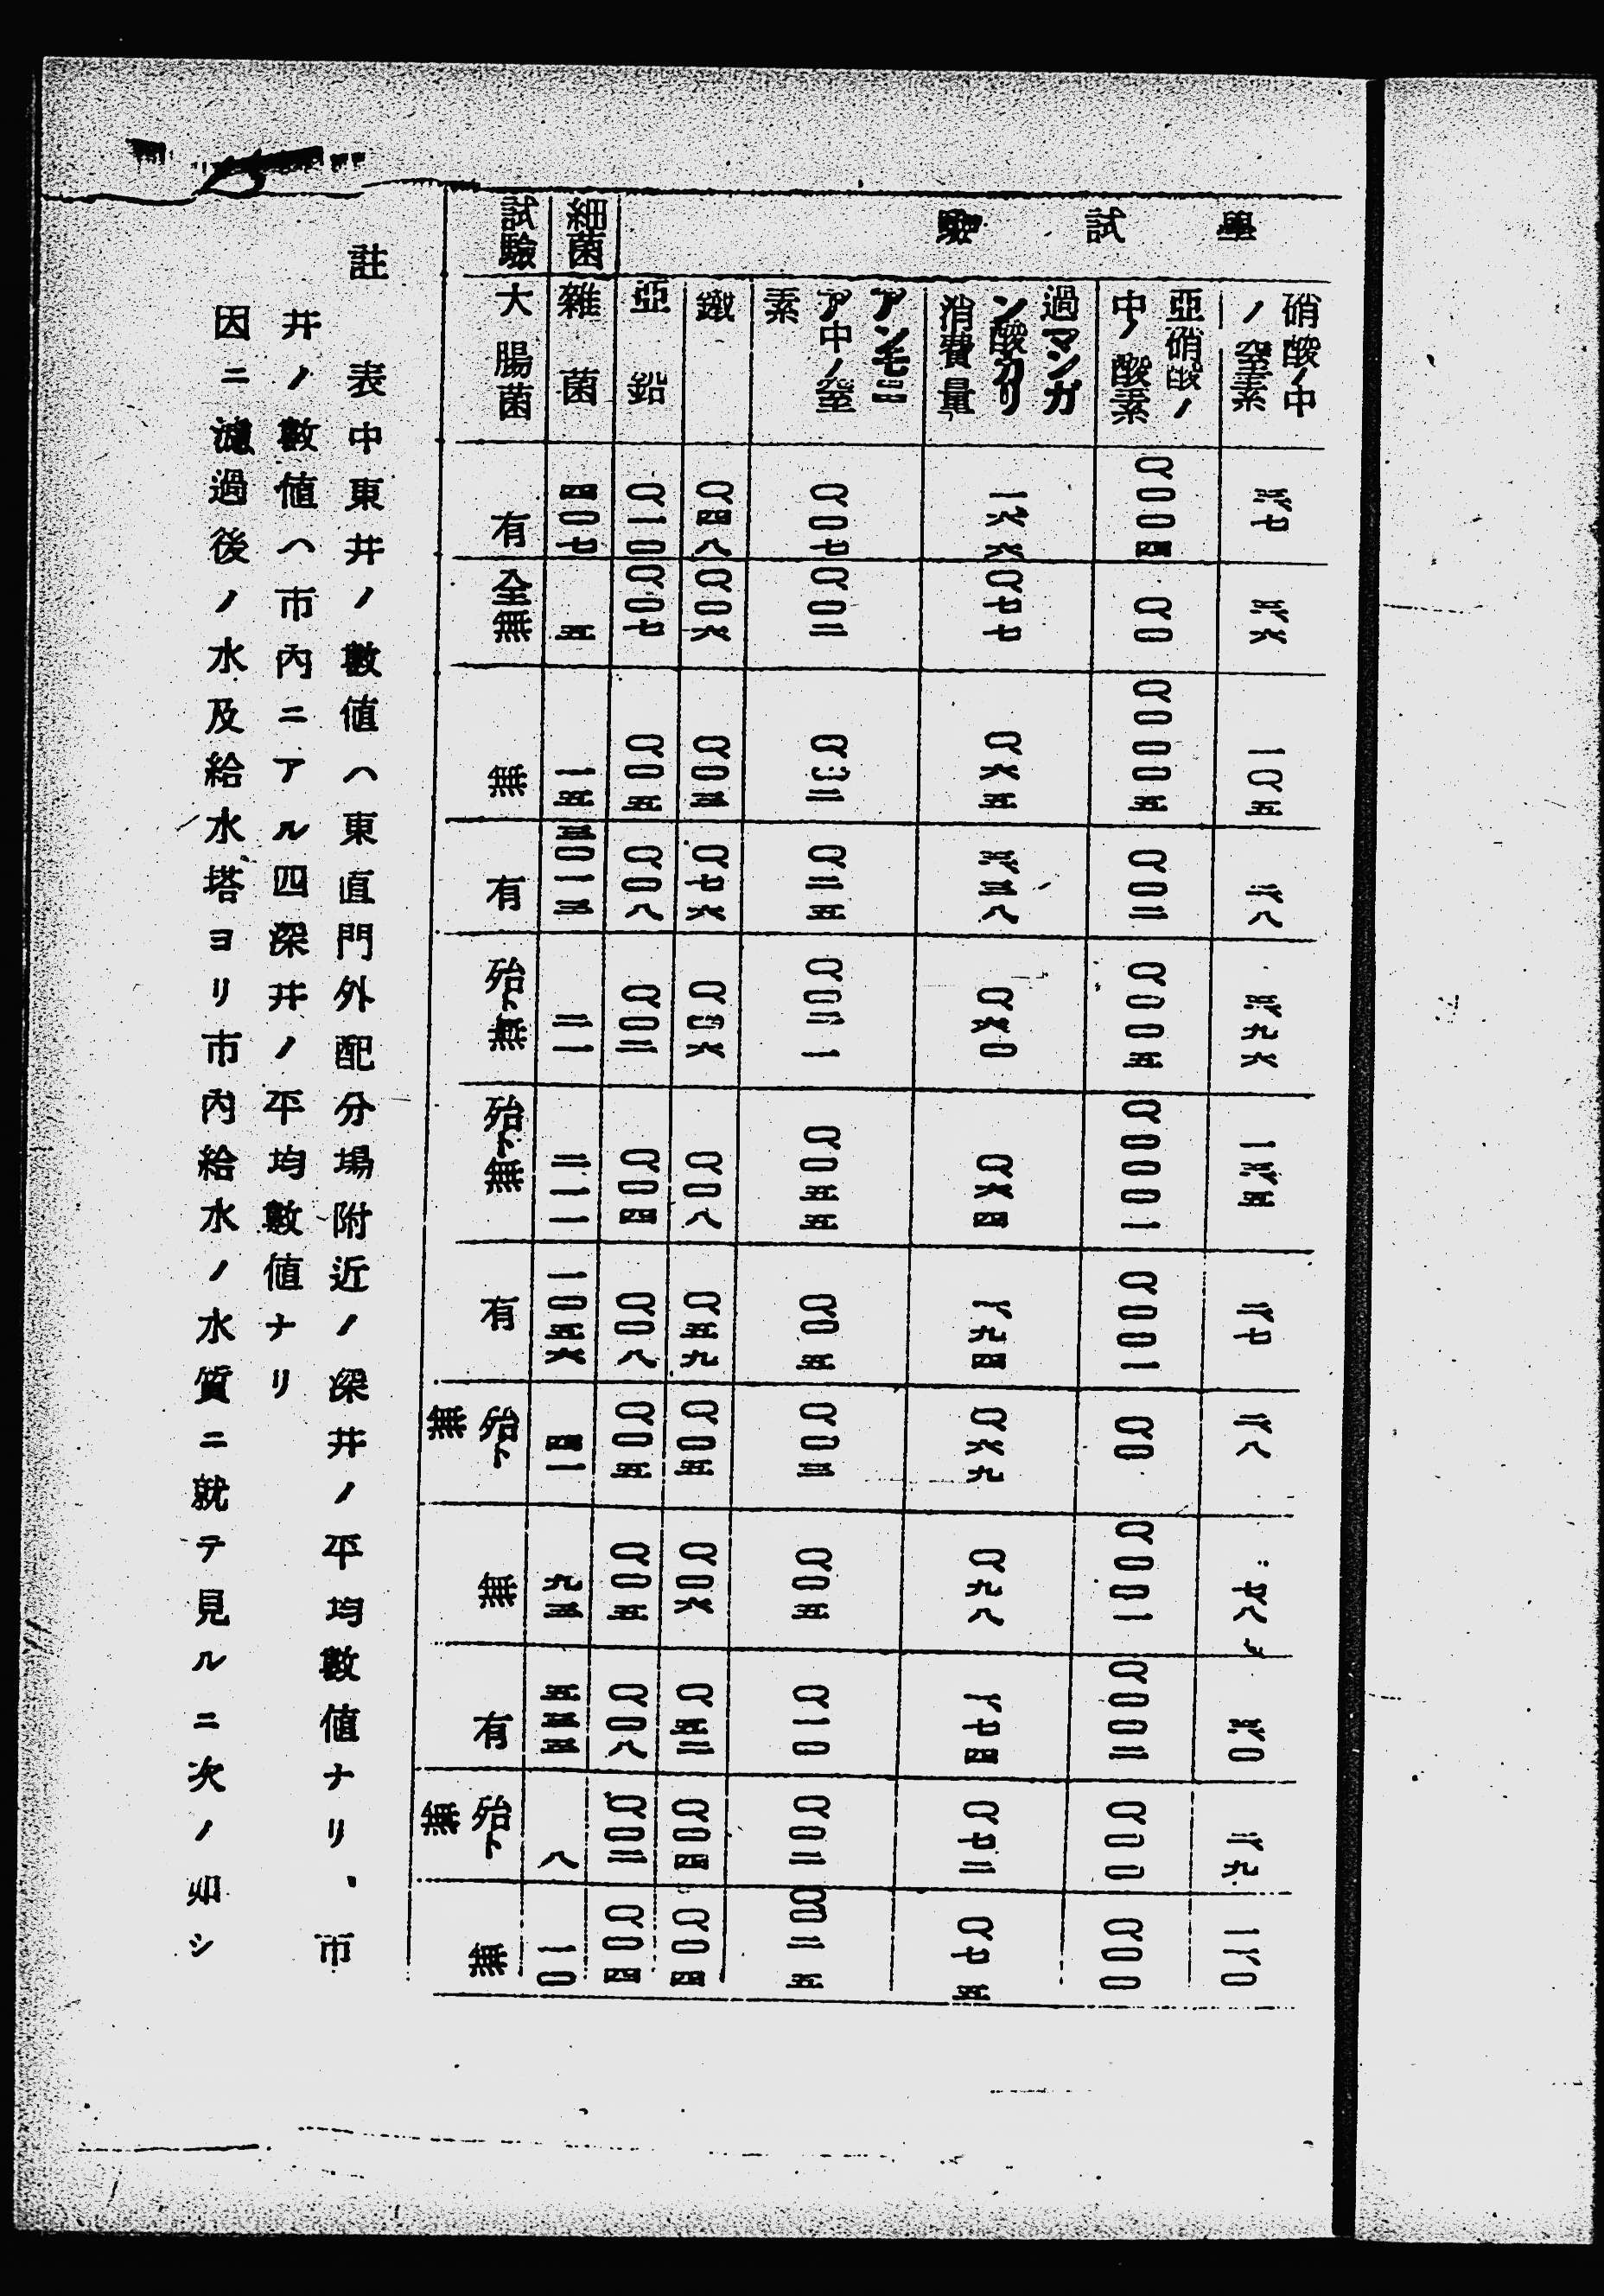 學試驗
硝酸ノ中ノ窒素
亞硝酸ノ中ノ酸素
過マンガン酸カリ消費量
アンモニア中ノ窒素
鐵
亞鉛
細菌試驗
雜菌
大腸菌
〇、〇〇四
〇、〇
〇、〇〇〇五
〇、〇二
〇、〇〇五
〇、〇〇〇一
〇、〇〇一
〇、〇
〇、〇〇一
〇、〇〇二
〇、〇〇
〇、〇〇
一、六六
〇、七七
〇、六五
六、三八
〇、六〇
〇、六四
一、九四
〇、六九
〇、九八
一、七四
〇、七二
〇、七五
〇、〇七
〇、〇二
〇、〇二
〇、二五
〇、〇二一
〇、〇五五
〇、〇五
〇、〇三
〇、〇五
〇、一〇
〇、〇二
〇、〇二五
〇、四八
〇、〇六
〇、〇三
〇、七六
〇、〇六
〇、〇八
〇、五九
〇、〇五
〇、〇六
〇、五二
〇、〇四
〇、〇四
〇、一〇
〇、〇七
〇、〇五
〇、〇八
〇、〇三
〇、〇四
〇、〇八
〇、〇五
〇、〇五
〇、〇八
〇、〇三
〇、〇四
四〇七
五
一五
三〇一三
二一
二一一
一〇五六
四一
九三
五三三
八
一〇
有
全無
無
有
殆ト無
殆ト無
有
殆ト無
無
有
殆ト無
無
註 表中東井ノ數値ハ東直門外配分場附近ノ深井ノ平均數値ナリ、市
井ノ數値ハ市內ニアル四深井ノ平均數値ナリ
因ニ濾過後ノ水及給水塔ヨリ市內給水ノ水質ニ就テ見ルニ次ノ如シ